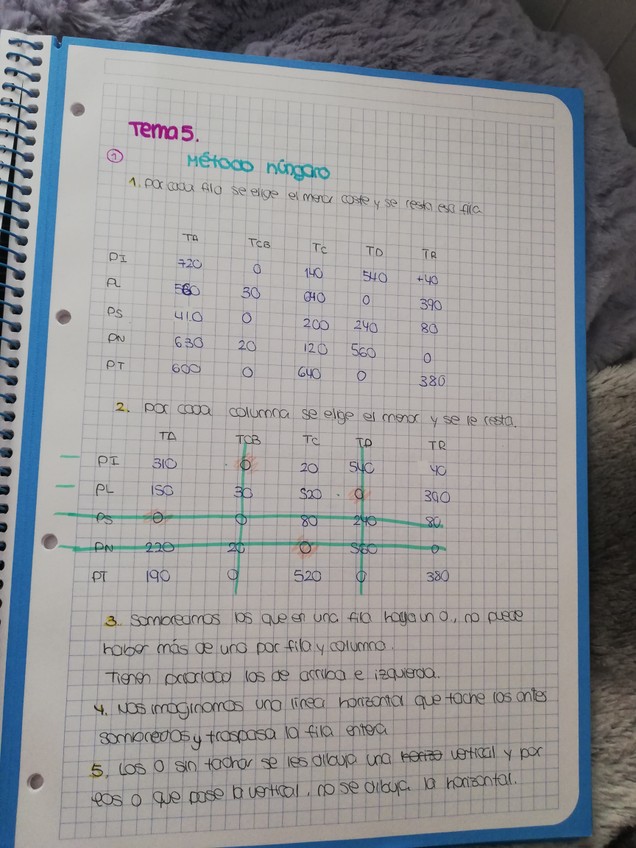 Tema 5.
1 Método húngaro
1. Por cada fila se elige el menor coste y se resta esa fila
TA TCB TC TD TR
PI 720 0 140 540 +40
PL 560 30 640 0 390
PS 410 0 200 240 80
PN 630 20 120 560 0
PT 600 0 640 0 380
2. Por cada columna se elige el menor y se le resta.
TA TCB TC TD TR
PI 310 0 20 540 40
PL 150 30 520 0 390
PS 0 0 80 240 80
PN 220 20 0 560 0
PT 190 0 520 0 380
3. Sombreamos los que en una fila haya un 0, no puede
haber más de uno por fila y columna.
Tienen prioridad los de arriba e izquierda.
4. Nos imaginamos una línea horizontal que tache los antes
sombredos y traspasa la fila entera
5. Los 0 sin tachar se les dibuja una vertical y por
los 0 que pase la vertical, no se dibuja la horizontal.